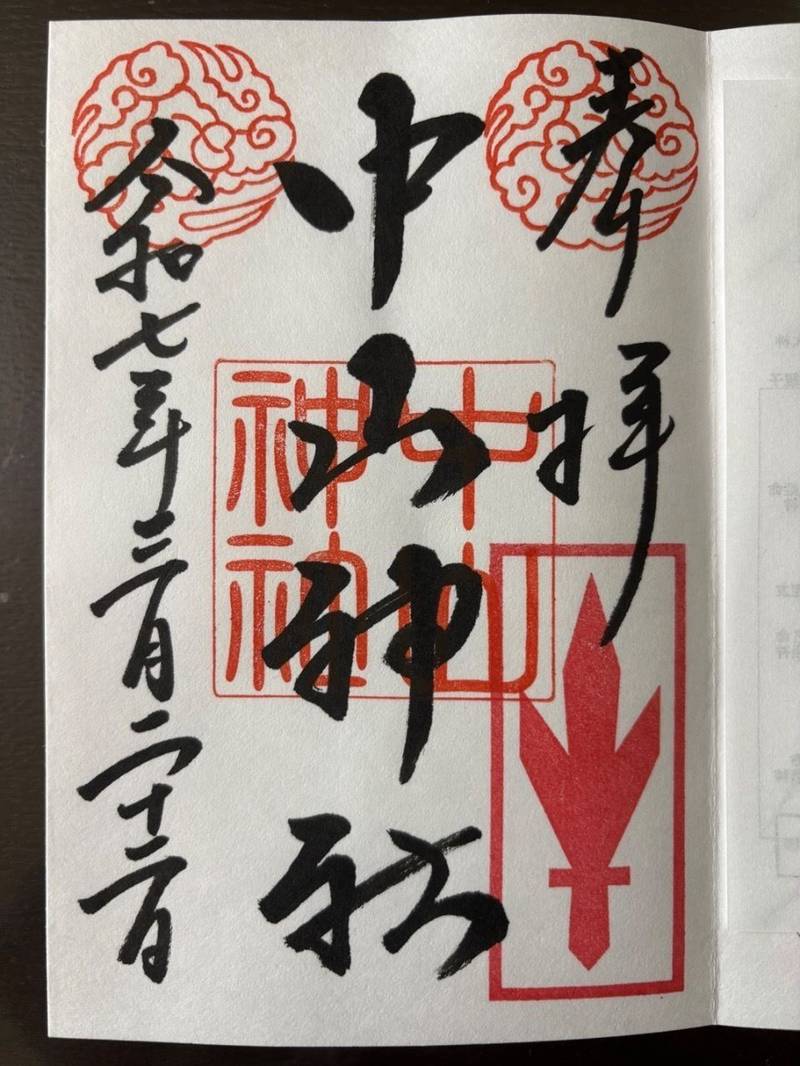 奉拝
中山神社
令和七年三月二十三日
中山
神社